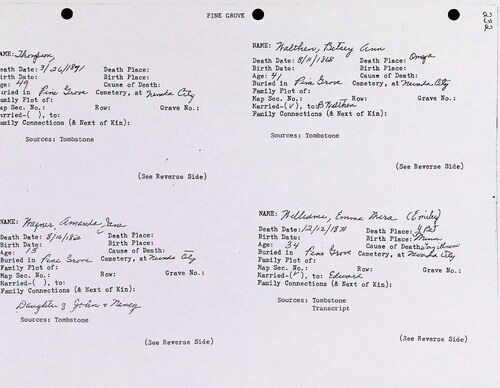 PINE GROVE
232
NAME: Thompson
Death Date: 3/26/1891 Death Place:
Birth Date: Birth Place:
Age: 49 Cause of Death:
Buried in Pine Grove Cemetery, at Nevada City
Family Plot of:
Map Sec. No.: Row: Grave No.:
Married-( ), to:
Family Connections (& Next of Kin):
Sources: Tombstone
(See Reverse Side)
NAME: Walthen, Betsey Ann
Death Date: 8/11/1868 Death Place: Omega
Birth Date: Birth Place:
Age: 41 Cause of Death:
Buried in Pine Grove Cemetery, at Nevada City
Family Plot of:
Map Sec. No.: Row: Grave No.:
Married-(✓), to: B Walthen
Family Connections (& Next of Kin):
Sources: Tombstone
(See Reverse Side)
NAME: Wagner, Amanda Jane
Death Date: 8/16/1860 Death Place:
Birth Date: Birth Place:
Age: 15 Cause of Death:
Buried in Pine Grove Cemetery, at Nevada City
Family Plot of:
Map Sec. No.: Row: Grave No.:
Married-( ), to:
Family Connections (& Next of Kin):
Daughter of John & Nancy
Sources: Tombstone
(See Reverse Side)
NAME: Williams, Emma Mira (Emiley)
Death Date: 12/12/1870 Death Place:
Birth Date: Birth Place:
Age: 34 Cause of Death: illness
Buried in Pine Grove Cemetery, at Nevada City
Family Plot of:
Map Sec. No.: Row: Grave No.:
Married-(✓), to: Edward
Family Connections (& Next of Kin):
Sources: Tombstone
Transcript
(See Reverse Side)